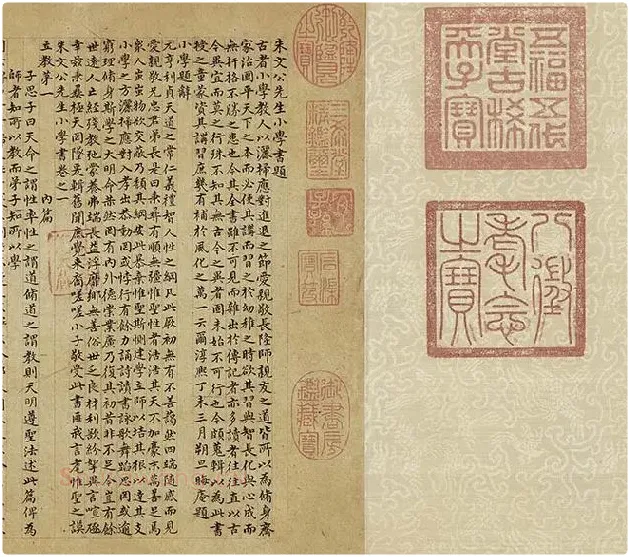 五福五代
堂古稀
天子寶
八徵
耄念
之寶
乾隆御覽之寶
三希堂
精鑑璽
宜子孫
石渠
寶笈
御書房
鑑藏寶
朱文公先生小學書題
古者小學教人以灑掃應對進退之節愛親敬長隆師親友之道皆所以為脩身齊
家治國平天下之本而必使其講而習之於幼稚之時欲其習與智長化與心成而
無扞格不勝之患也今其全書雖不可見而雜出於傳記者亦多讀者往往直以古
今異宜而莫之行殊不知其無古今之異者固未始不可行也今頗蒐輯以為此書
授之童蒙資其講習庶幾有補於風化之萬一云爾淳熙丁未三月朔旦晦庵題
小學題辭
元亨利貞天道之常仁義禮智人性之綱凡此厥初無有不善藹然四端隨感而見
愛親敬兄忠君弟長是曰秉彝有順無彊惟聖性者浩浩其天不加毫末萬善足焉
衆人蚩蚩物欲交蔽乃頹其綱安此暴棄惟聖斯惻建學立師以培其根以達其支
小學之方灑掃應對入孝出恭動罔或悖行有餘力誦詩讀書詠歌舞蹈思罔或逾
窮理脩身斯學之大明命赫然罔有內外德崇業廣乃復其初昔非不足今豈有餘
世遠人亡經殘教弛蒙養弗端長益浮靡鄉無善俗世乏良材利欲紛拏異言喧豗
幸茲秉彝極天罔墜爰輯舊聞庶覺來裔嗟嗟小子敬受此書匪我言耄惟聖之謨
朱文公先生小學書卷之一
內篇
立教第一
子思子曰天命之謂性率性之謂道脩道之謂教則天明遵聖法述此篇俾為
師者知所以教而弟子知所以學